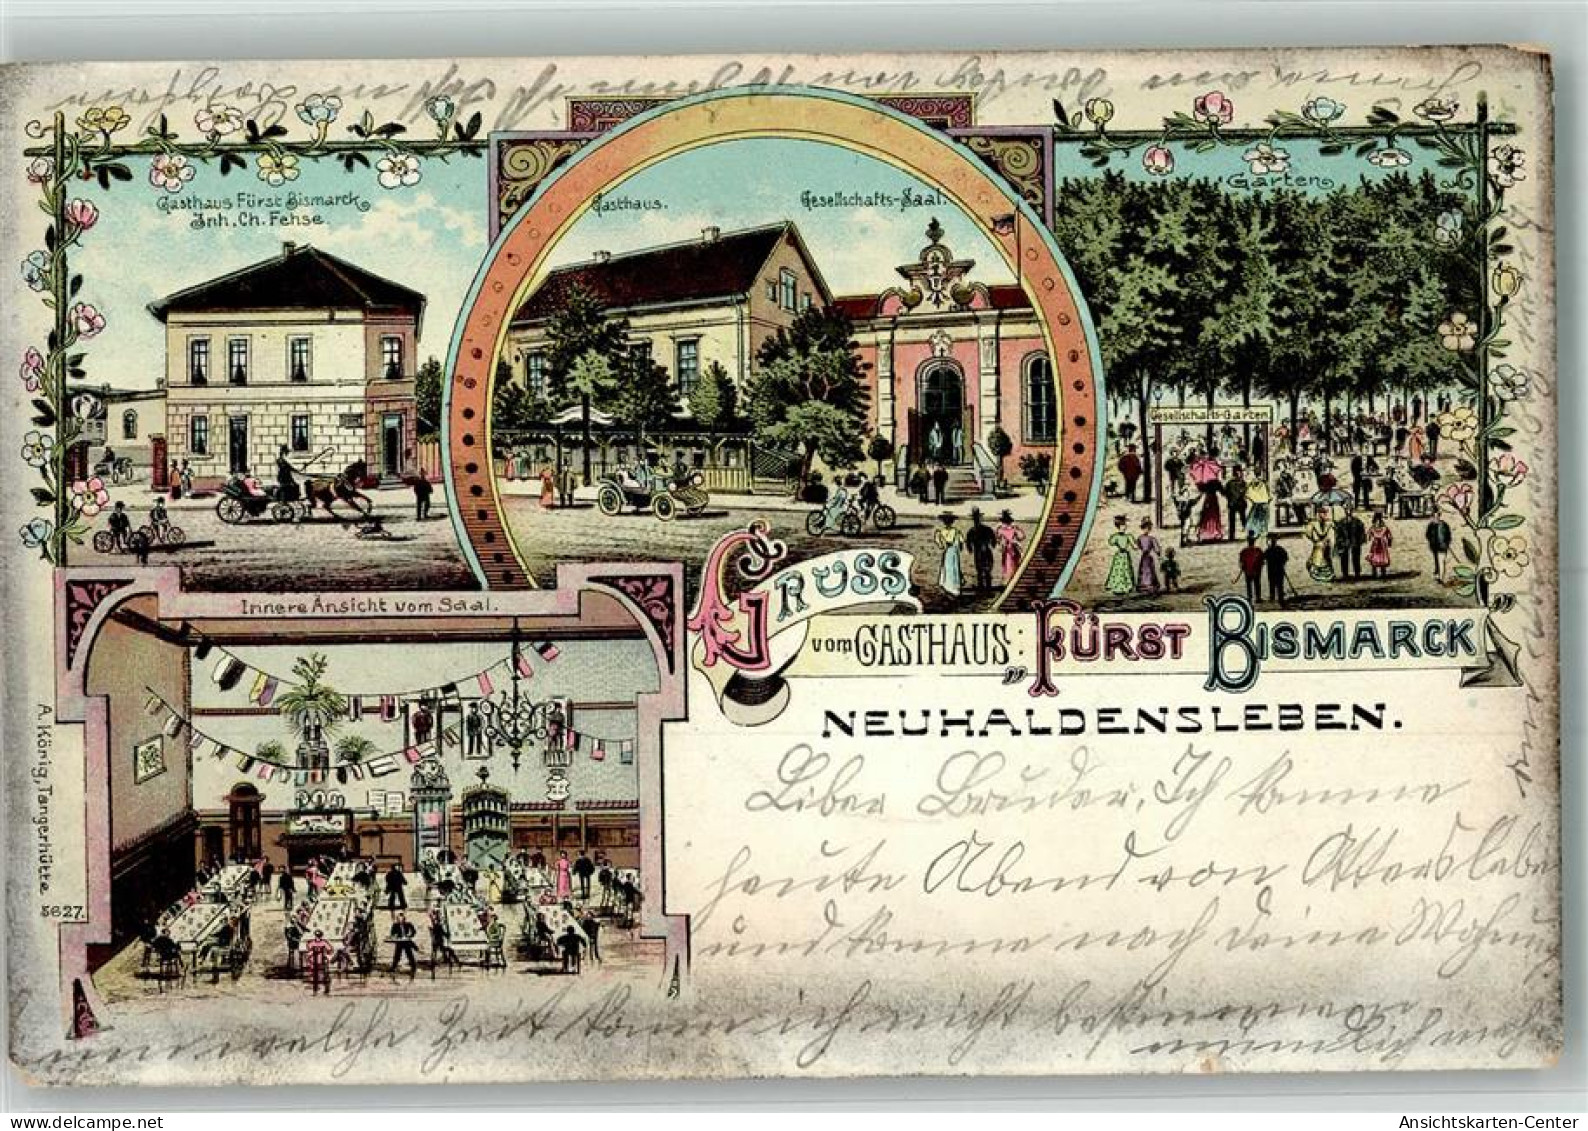 Gasthaus Fürst Bismarck
Inh. Ch. Fehse.
Gasthaus.
Gesellschafts-Saal.
Garten
Gesellschafts-Garten
Innere Ansicht vom Saal.
Gruss
vom GASTHAUS: „FÜRST BISMARCK"
NEUHALDENSLEBEN.
Liber Bruder, Ich komme
heute Abend von Ottersleben
und komme nach deine Wohnung
um welche Zeit kann ich nicht bestimmen
mündlich mehr
A. König, Tangerhütte.
5627.
Ansichtskarten-Center